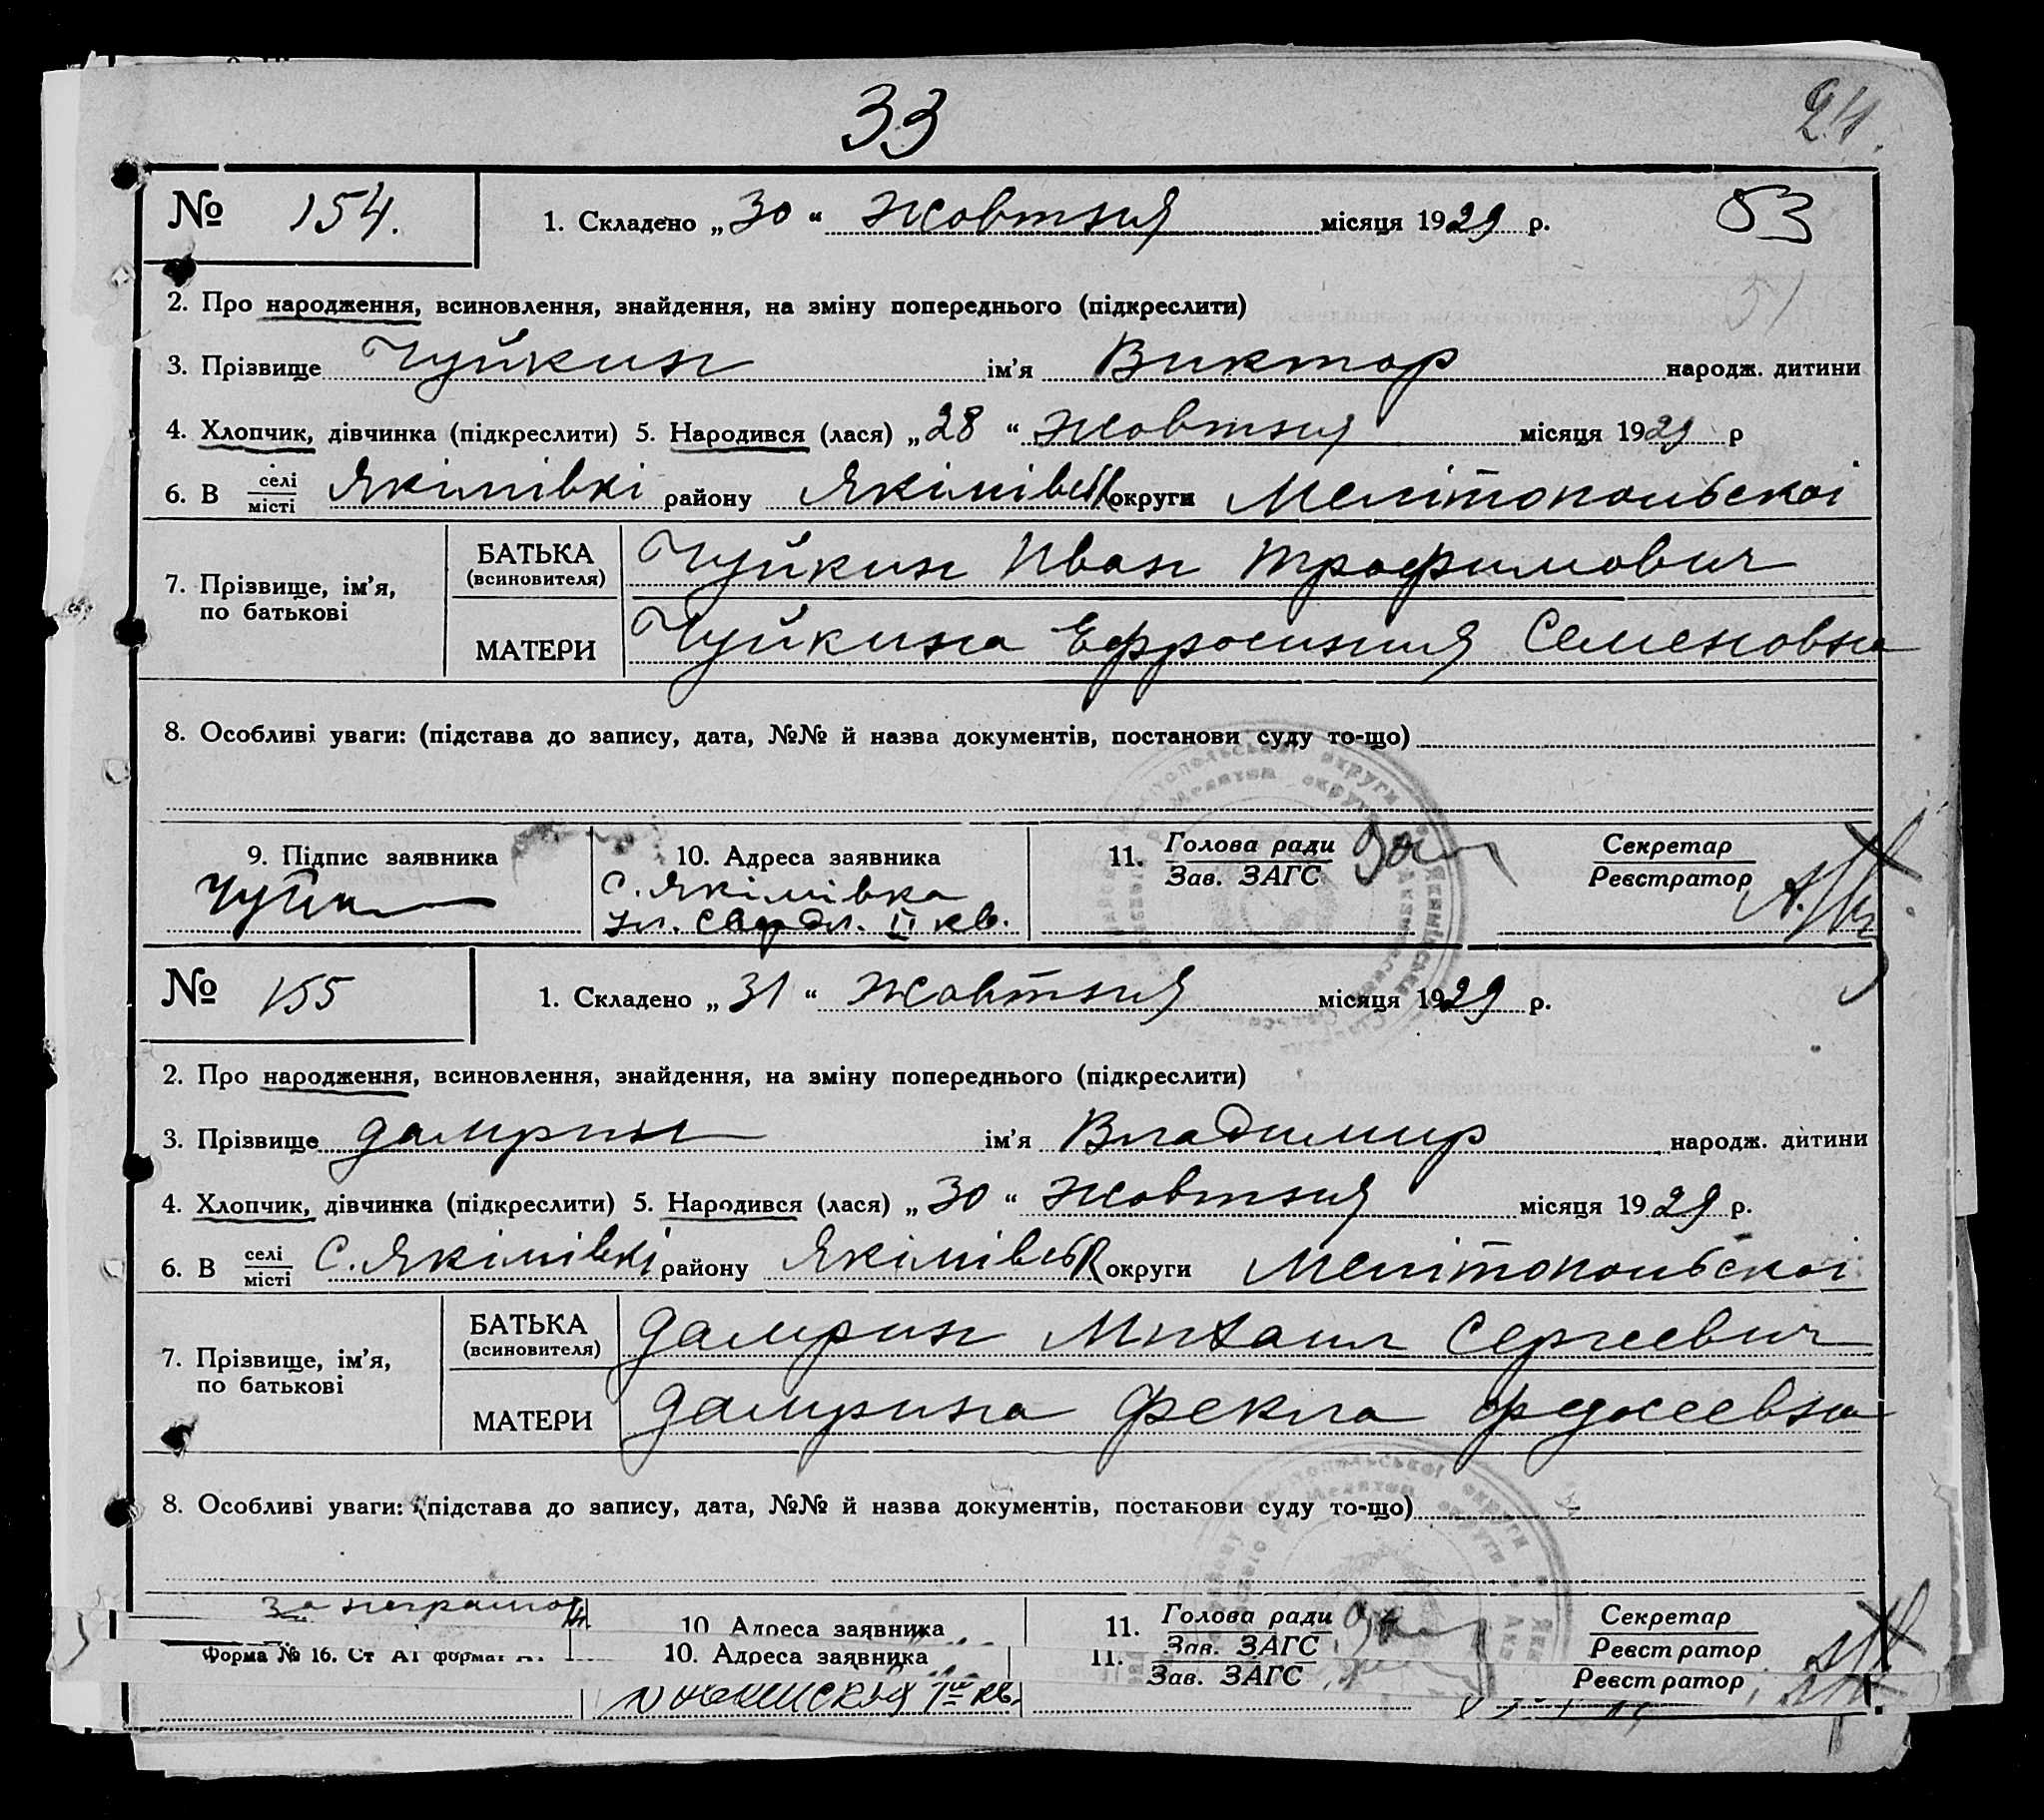 33
24.
№ 154.
1. Складено „30“ жовтня місяця 1929 р.
53
51
2. Про народження, всиновлення, знайдення, на зміну попереднього (підкреслити)
3. Прізвище Чуйкин ім’я Виктор народж. дитини
4. Хлопчик, дівчинка (підкреслити) 5. Народився (лася) „28“ жовтня місяця 1929 р
6. В селі/місті Якімівкі району Якімівськ округи Мелітопольскоі
7. Прізвище, ім’я, по батькові
БАТЬКА (всиновителя) Чуйкин Иван Трофимович
МАТЕРИ Чуйкина Ефросиния Семеновна
8. Особливі уваги: (підстава до запису, дата, №№ й назва документів, постанови суду то-що)
9. Підпис заявника
10. Адреса заявника
11. Голова ради
Зав. ЗАГС
Секретар
Реєстратор
с. Якімівка
ул. Свердл. II кв.
№ 155
1. Складено „31“ жовтня місяця 1929 р.
2. Про народження, всиновлення, знайдення, на зміну попереднього (підкреслити)
3. Прізвище Замрин ім’я Владимир народж. дитини
4. Хлопчик, дівчинка (підкреслити) 5. Народився (лася) „30“ жовтня місяця 1929 р.
6. В селі/місті С. Якімівкі району Якімівськ округи Мелітопольскоі
7. Прізвище, ім’я, по батькові
БАТЬКА (всиновителя) Замрин Михаил Сергеевич
МАТЕРИ Замрина Фекла
8. Особливі уваги: (підстава до запису, дата, №№ й назва документів, постанови суду то-що)
За неграмотн
10. Адреса заявника
11. Голова ради
Зав. ЗАГС
Секретар
Реєстратор
Форма № 16. Ст
10. Адреса заявника
11.
Зав. ЗАГС
Реєстратор
кв.